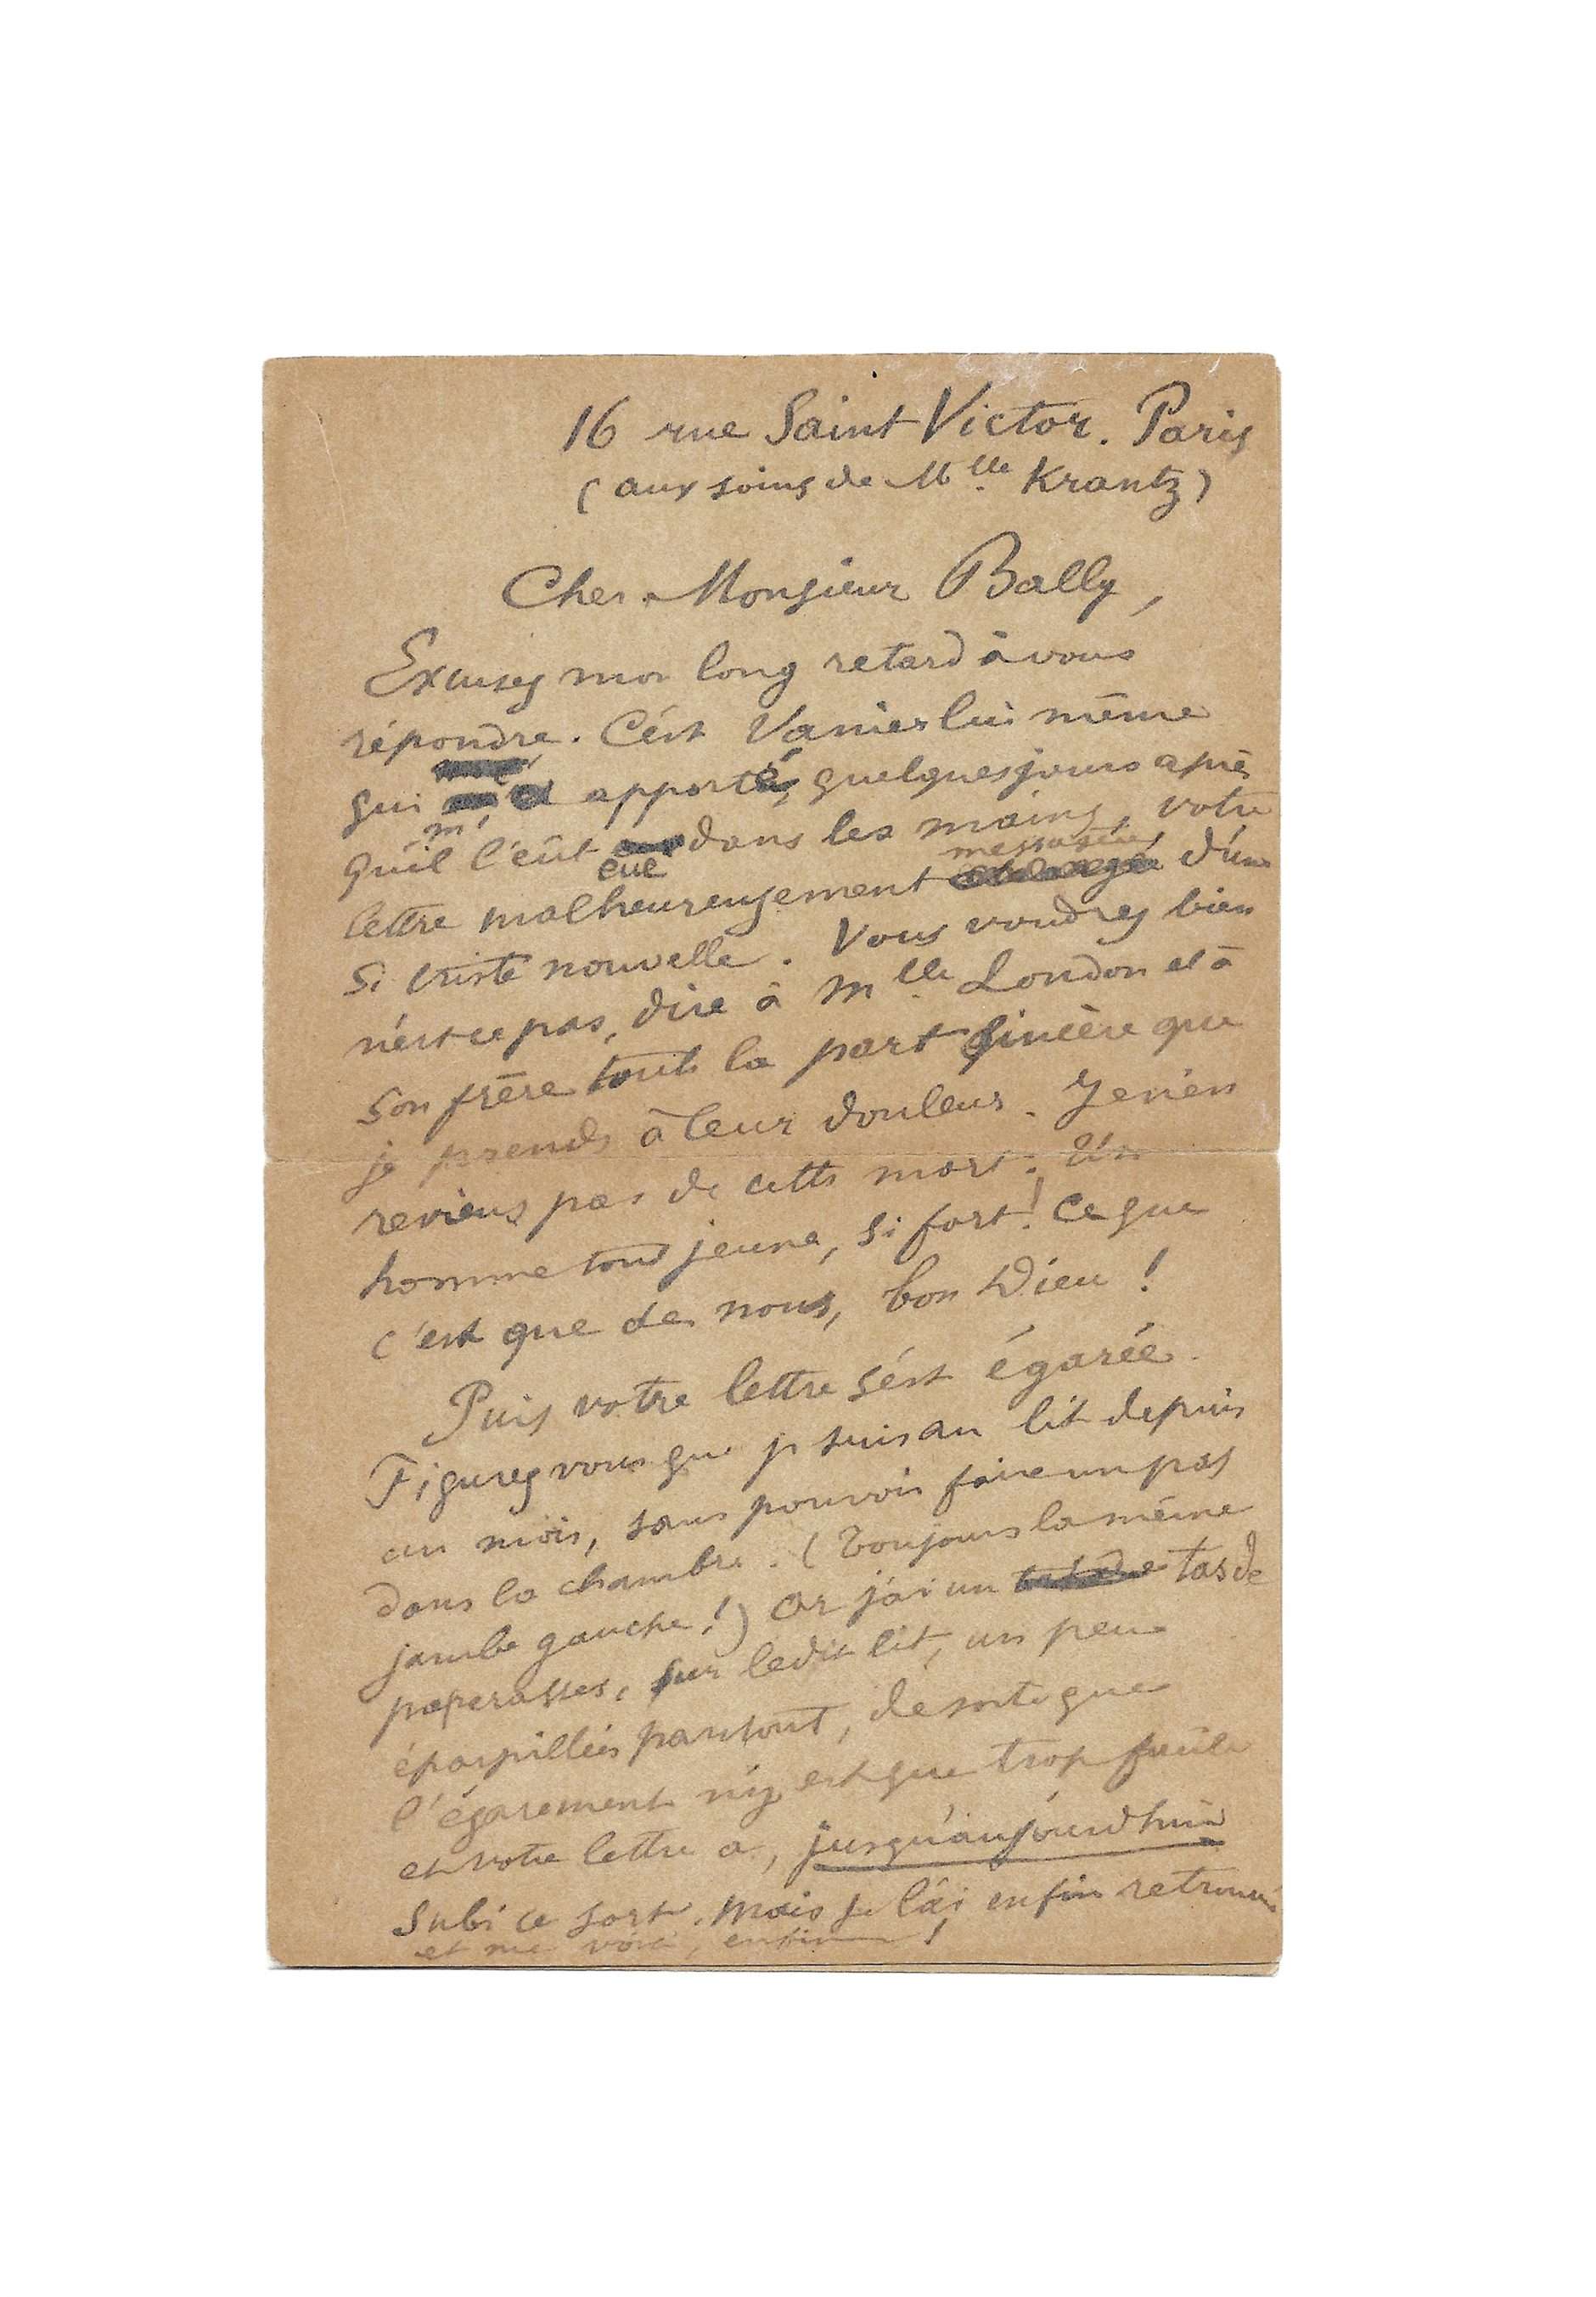 16 rue Saint Victor. Paris
(aux soins de Mlle Krantz)
Cher Monsieur Bally,
Excusez mon long retard à vous
répondre. C'est Vanier lui même
qui m'a apporté, quelques jours après
qu'il l'eût eue dans les mains, votre
lettre malheureusement messagère d'une
si triste nouvelle. Vous voudrez bien
n'est ce pas, dire à Mlle London et à
son frère toute la part sincère que
je prends à leur douleur. Je n'en
reviens pas de cette mort. Un
homme tout jeune, si fort! Ce que
c'est que de nous, bon Dieu!
Puis votre lettre s'est égarée.
Figurez vous que je suis au lit depuis
un mois, sans pouvoir faire un pas
dans la chambre. (Toujours la même
jambe gauche!) Or j'ai un tas de
paperasses, sur ledit lit, un peu
éparpillées partout, de sorte que
l'égarement n'y est que trop facile
et votre lettre a, jusqu'aujourd'hui
subi ce sort. Mais je l'ai enfin retrouvée
et me voici, enfin!